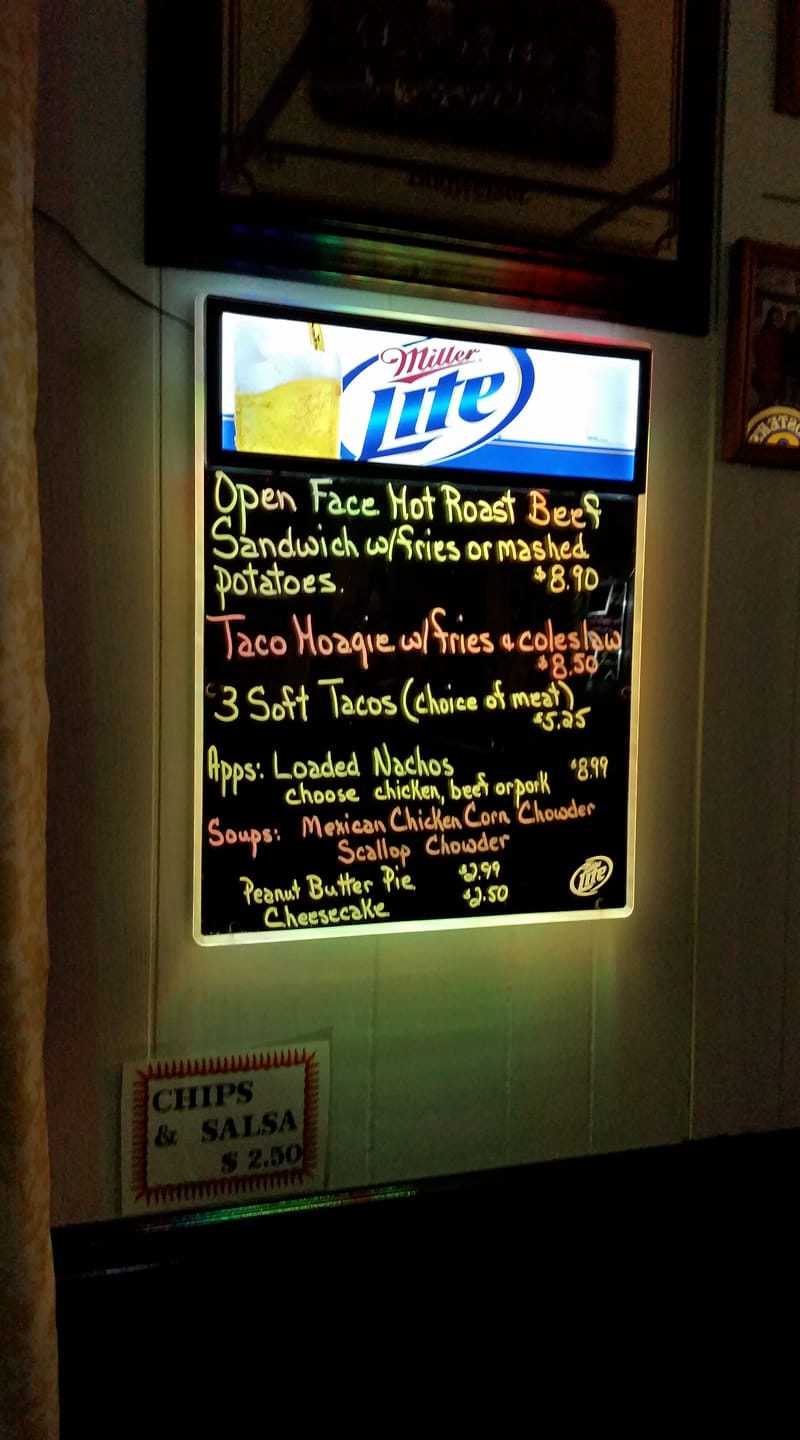 Budweiser
Miller
Lite
Open Face Hot Roast Beef
Sandwich w/fries or mashed
potatoes. $8.90
Taco Hoagie w/fries & coleslaw
$8.50
3 Soft Tacos (choice of meat)
$5.25
Apps: Loaded Nachos $8.99
choose chicken, beef or pork
Soups: Mexican Chicken Corn Chowder
Scallop Chowder
Peanut Butter Pie $2.99
Cheesecake $2.50
Lite
CHIPS
& SALSA
$ 2.50